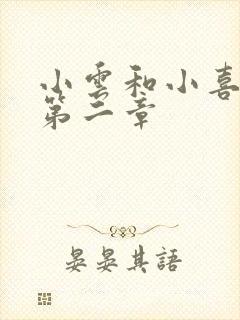 小雲和小喜
第二章
晏晏其語